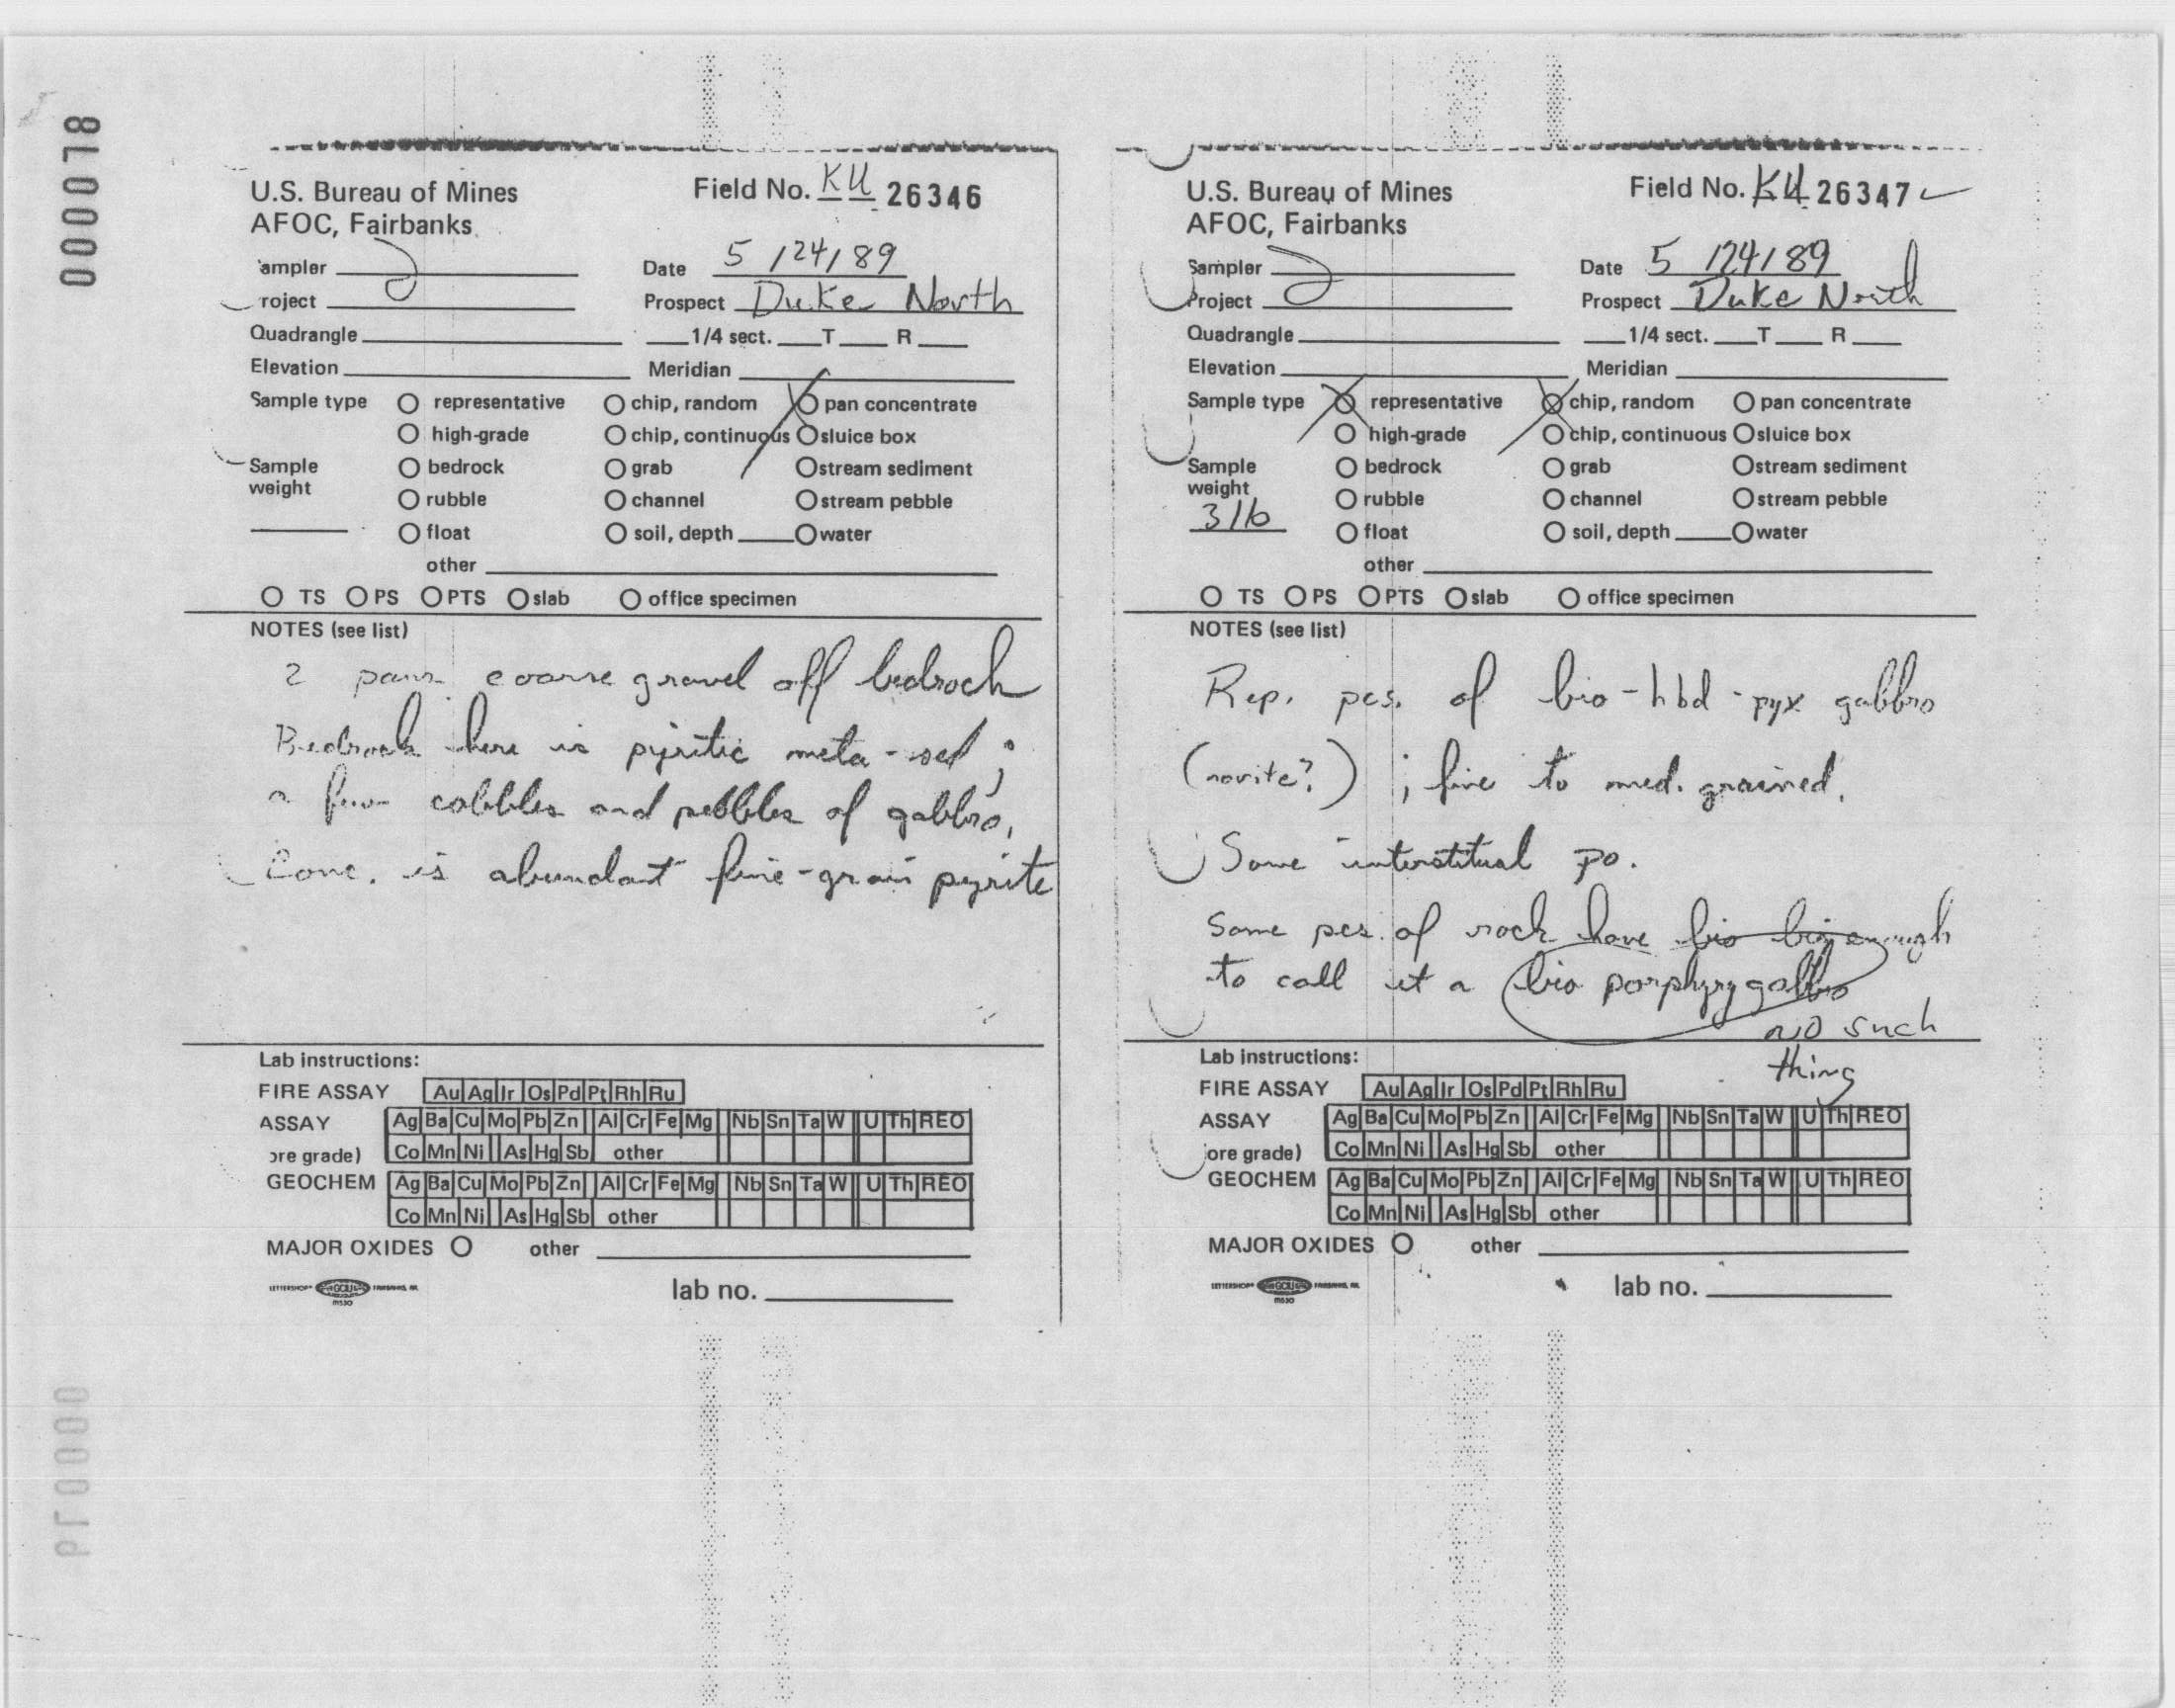 000078
U.S. Bureau of Mines
AFOC, Fairbanks
Field No. KU 26346
ampler
Date 5/24/89
roject
Prospect Duke North
Quadrangle 1/4 sect. T R
Elevation Meridian
Sample type O representative O chip, random O pan concentrate
O high-grade O chip, continuous O sluice box
Sample O bedrock O grab O stream sediment
weight O rubble O channel O stream pebble
O float O soil, depth O water
other
O TS O PS O PTS O slab O office specimen
NOTES (see list)
2 pans coarse gravel off bedrock
Bedrock here is pyritic meta-sed;
a few cobbles and pebbles of gabbro.
Conc. is abundant fine-grain pyrite
Lab instructions:
FIRE ASSAY Au Ag Ir Os Pd Pt Rh Ru
ASSAY Ag Ba Cu Mo Pb Zn Al Cr Fe Mg Nb Sn Ta W U Th REO
ore grade) Co Mn Ni As Hg Sb other
GEOCHEM Ag Ba Cu Mo Pb Zn Al Cr Fe Mg Nb Sn Ta W U Th REO
Co Mn Ni As Hg Sb other
MAJOR OXIDES O other
lab no.
U.S. Bureau of Mines
AFOC, Fairbanks
Field No. KU 26347
Sampler
Date 5/24/89
Project
Prospect Duke North
Quadrangle 1/4 sect. T R
Elevation Meridian
Sample type O representative O chip, random O pan concentrate
O high-grade O chip, continuous O sluice box
Sample O bedrock O grab O stream sediment
weight O rubble O channel O stream pebble
3 lb O float O soil, depth O water
other
O TS O PS O PTS O slab O office specimen
NOTES (see list)
Rep. pcs. of bio-hbd-pyx gabbro
(norite?); fine to med. grained.
Some interstitual po.
Some pcs. of rock have bio big enough
to call it a bio porphyry gabbro
no such
thing
Lab instructions:
FIRE ASSAY Au Ag Ir Os Pd Pt Rh Ru
ASSAY Ag Ba Cu Mo Pb Zn Al Cr Fe Mg Nb Sn Ta W U Th REO
ore grade) Co Mn Ni As Hg Sb other
GEOCHEM Ag Ba Cu Mo Pb Zn Al Cr Fe Mg Nb Sn Ta W U Th REO
Co Mn Ni As Hg Sb other
MAJOR OXIDES O other
lab no.